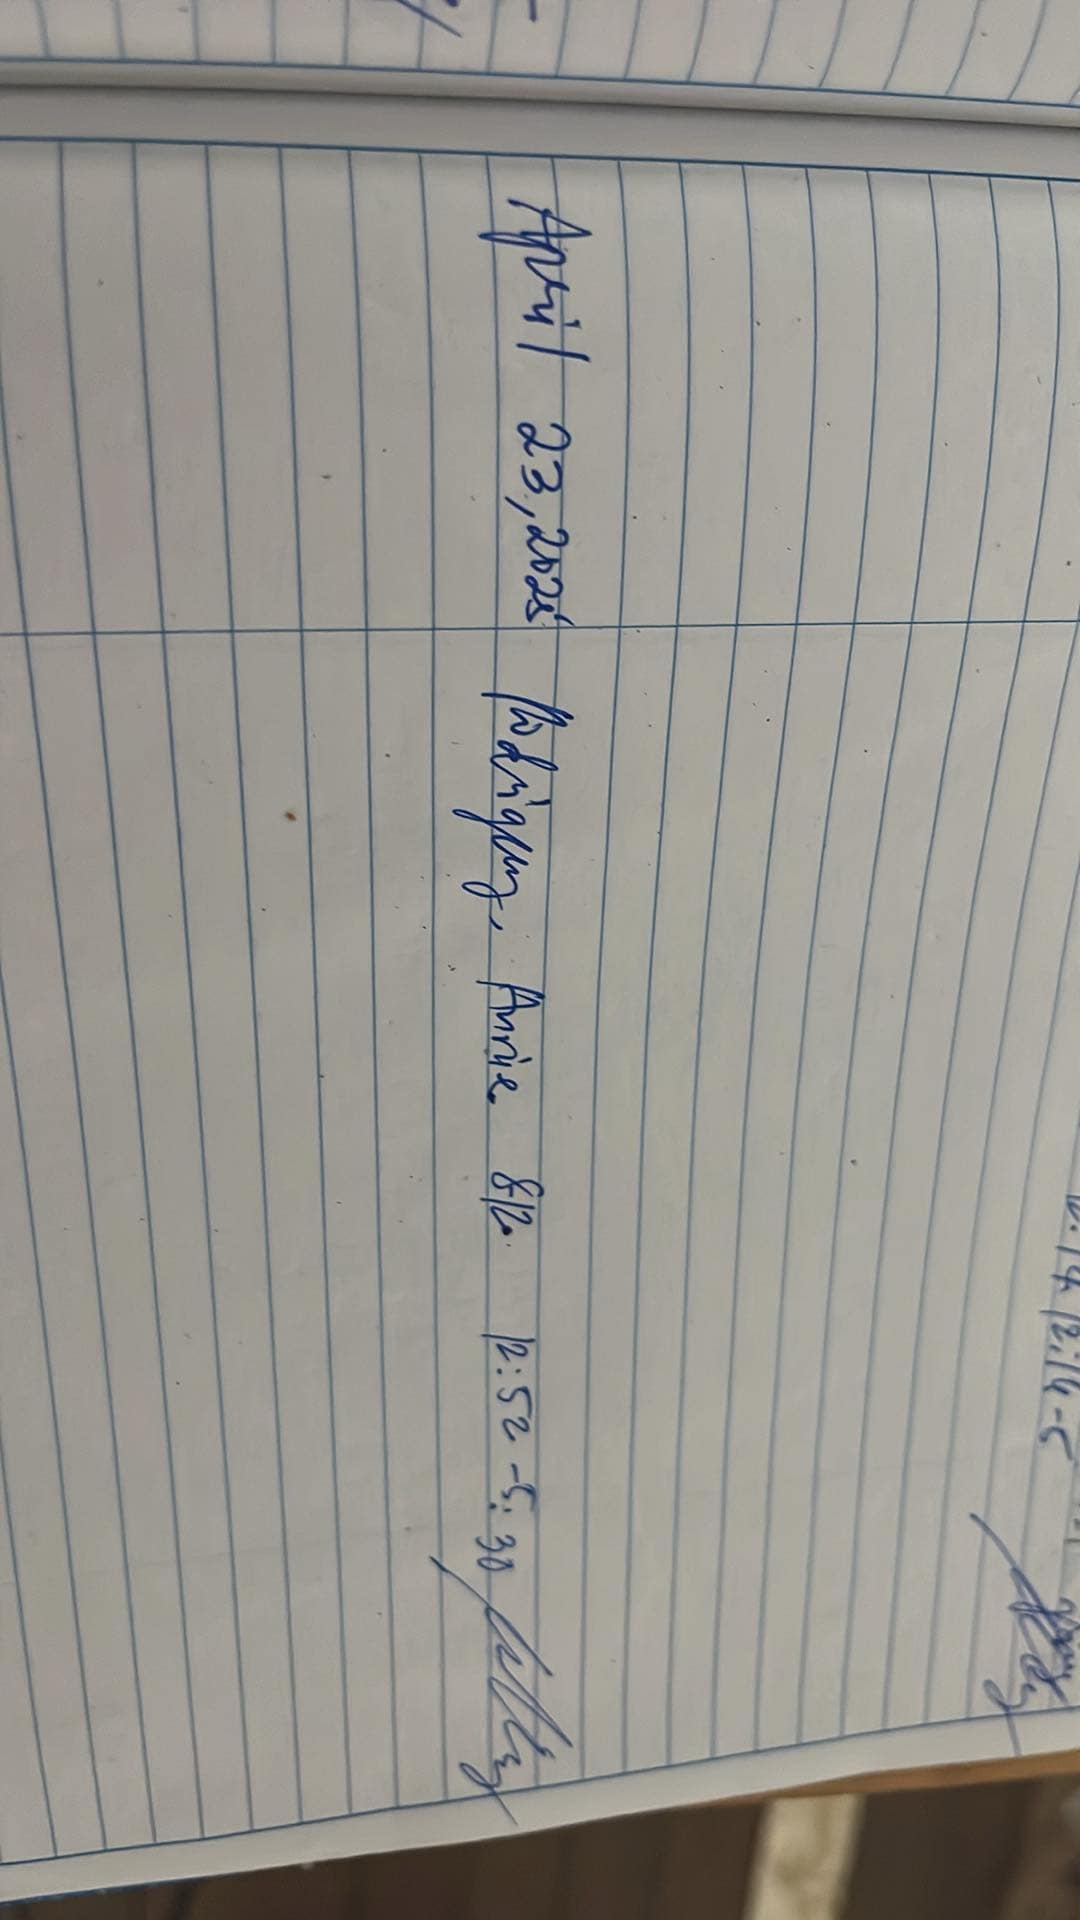 12:14-5
April 23, 2025 Rodriguez, Annie 812 12:52-5:30